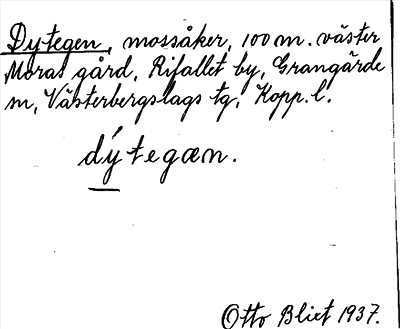 Dytegen, mossåker, 100 m. väster
Moras gård, Rifallet by, Grangärde
sn, Västerbergslags tg, Kopp. l.
dýtegæn.
Otto Blixt 1937.